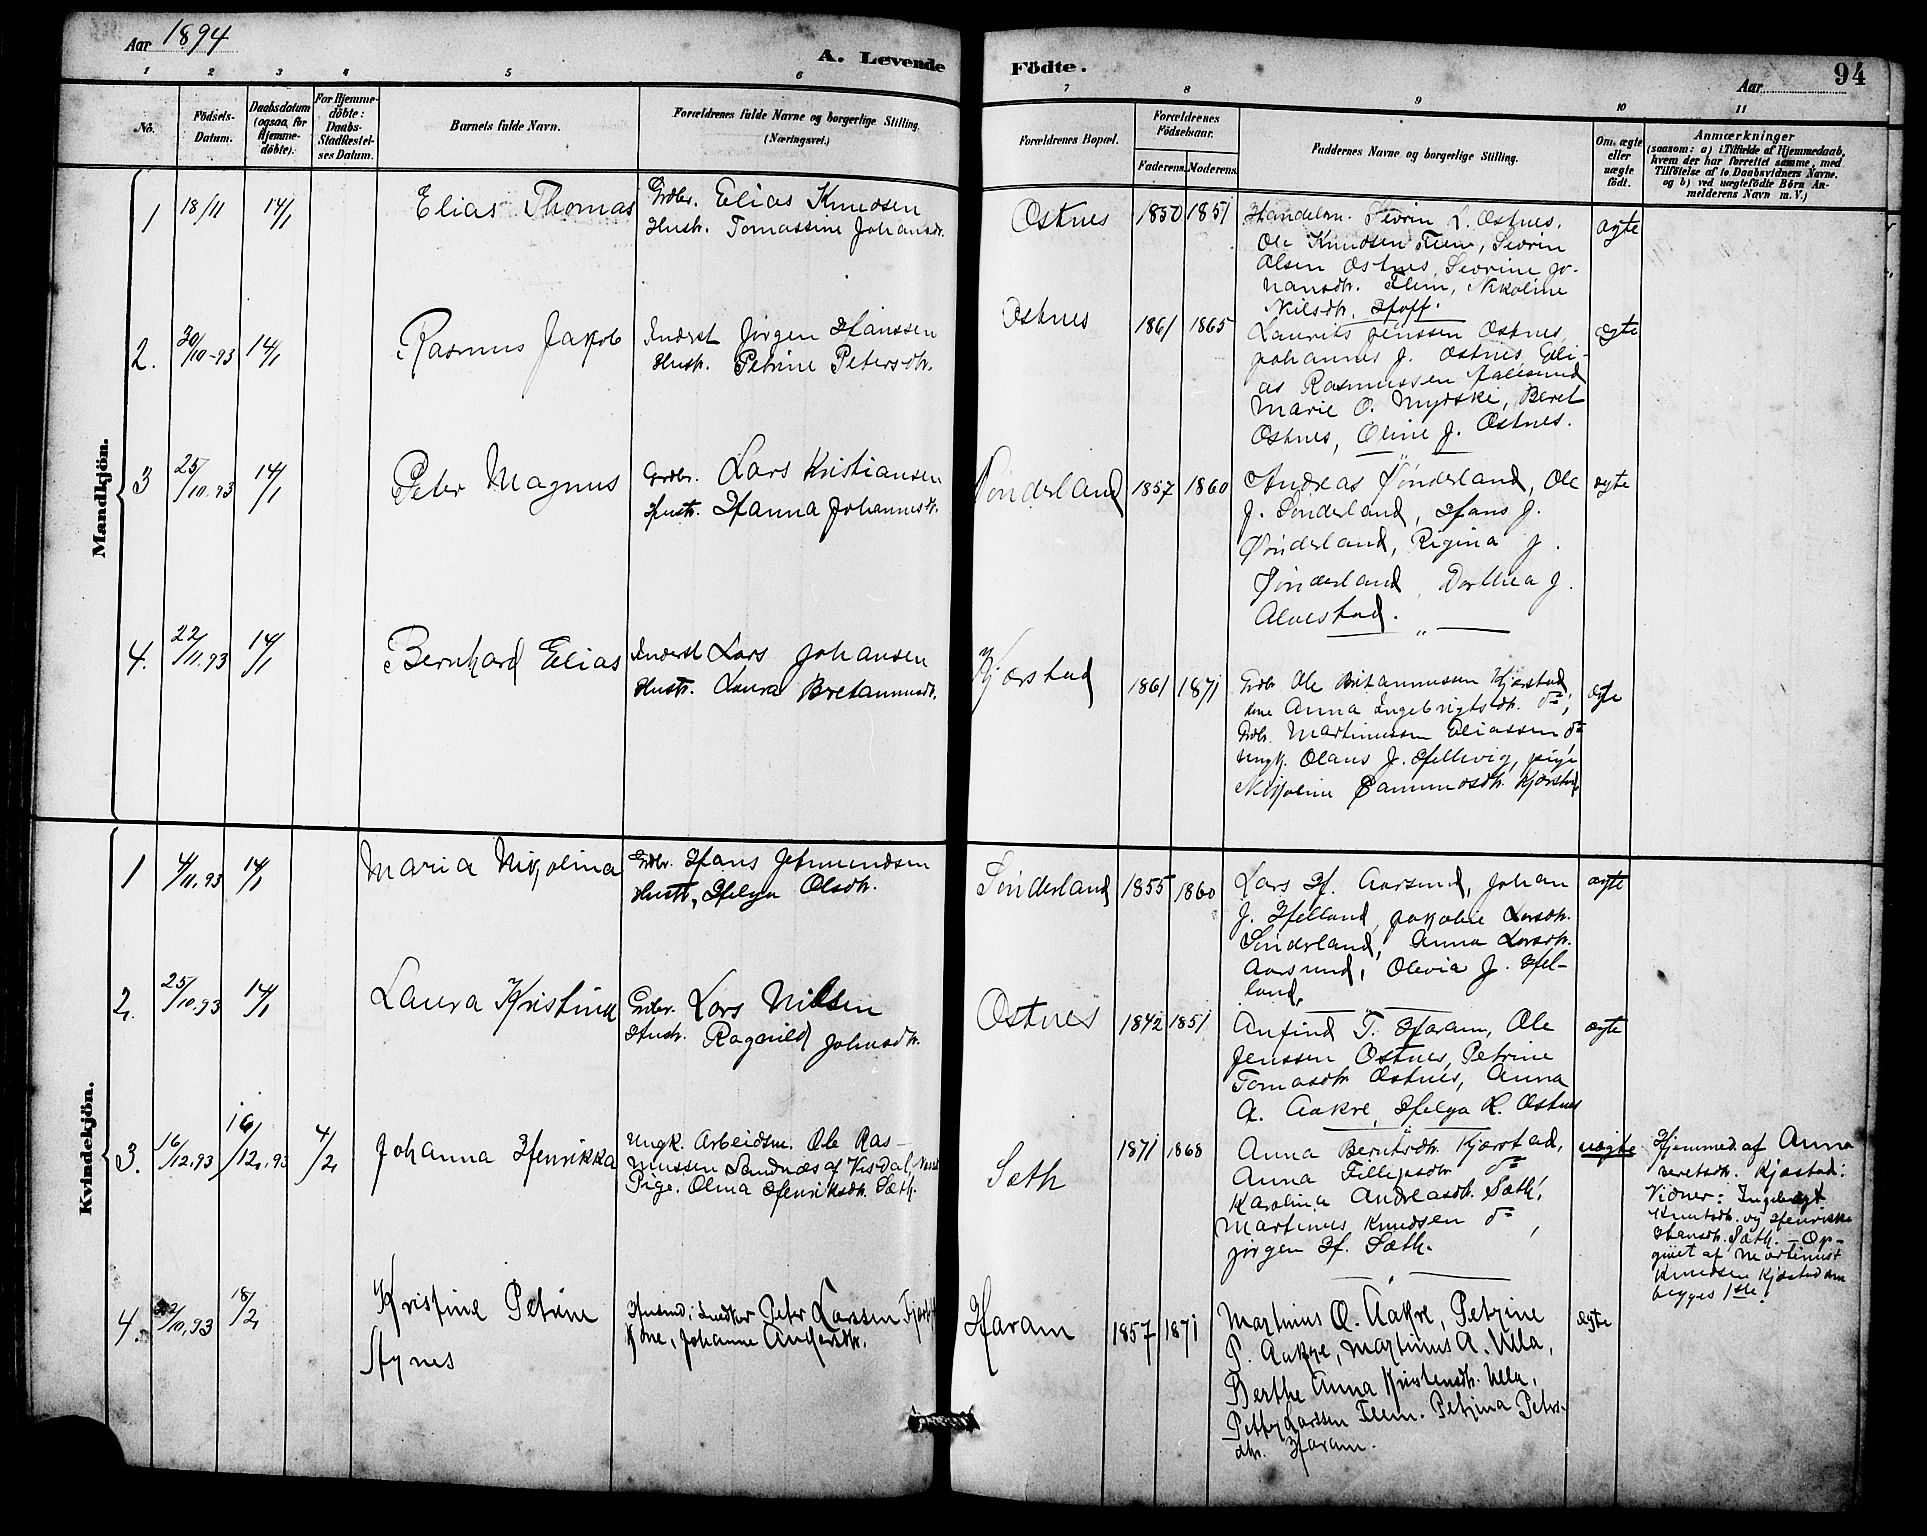 Aar 1894
A. Levende Födte.
Aar
94
1 2 3 4 5 6 7 8 9 10 11
No.
Födsels-
Datum.
Daabsdatum
(ogsaa for
Hjemme-
döbte).
For Hjemme-
döbte:
Daabs-
Stadfæstel-
ses Datum.
Barnets fulde Navn.
Forældrenes fulde Navne og borgerlige Stilling.
(Næringsvei.)
Forældrenes Bopæl.
Forældrenes
Födselsaar.
Faderens. Moderens.
Faddernes Navne og borgerlige Stilling.
Om ægte
eller
uægte
födt.
Anmærkninger
(saasom: a) i Tilfælde af Hjemmedaab,
hvem der har forrettet samme, med
Tilföielse af to Daabsvidners Navne,
og b) ved uægtefödte Börn An-
melderens Navn m. V.)
Mandkjön.
1 18/11 14/1
Elias Thomas
Grdbr. Elias Knudsen
Hustr. Tomassine Johansdtr.
Ostnes
1850 1851
Handelsm. Sevrin L. Ostnes,
Ole Knudsen Flem, Sevrin
Olsen Ostnes, Sevrine Jo-
hansdtr. Flem, Nikoline
Nilsdtr. Hoff.
ægte
2. 30/10-93 14/1
Rasmus Jakob
Inderst Jørgen Hanssen
Hustr. Petrine Petersdtr.
Ostnes
1861 1865
Laurits Jenssen Ostnes,
Johannes J. Ostnes, Eli-
as Rasmussen Aalesund
Marie O. Myrske, Beret
Ostnes, Oline J. Ostnes.
ægte
3 25/10.93 14/1
Peter Magnus
Grdbr. Lars Kristiansen
Hustr. Hanna Johannesdtr.
Sønderland
1857 1860
Andreas Sønderland, Ole
J. Sønderland, Hans J.
Sønderland, Regina J.
Sønderland, Dorthea J.
Alvestad.
ægte
4. 22/11.93 14/1
Bernhard Elias
Inderst Lars Johansen
Hustr. Laura Bretannusdtr.
Kjærstad
1861 1871
Grdbr. Ole Britannussen Kjærstad,
kone Anna Ingebrigtsdtr. do,
Grdbr. Martinussen Eliassen do
ungk. Olaus J. Hellevig, pige
Nikoline Rasmusdtr. Kjærstad,
ægte
Kvindekjön.
1 4/11.93 14/1
Maria Nikolina
Grdbr. Hans Jetmundsen
Hustr. Helga Olsdtr.
Sønderland
1855 1860
Lars H. Aarsund, Johan
J. Helland, Jakobie Larsdtr.
Sønderland, Anna Larsdtr.
Aarsund, Olevia J. Hel-
land.
ægte
2. 25/10.93 14/1
Laura Kristina
Grdbr. Lars Nilsen
Hustr. Ragnild Johnsdtr.
Ostnes
1842 1851
Anfind T. Haram, Ole
Jenssen Ostnes, Petrine
Tomasdtr. Ostnes, Anna
A. Aakre, Helga K. Ostnes
ægte
3. 16/12.93 16/12.93 4/2
Johanna Henrikka
Ungk. Arbeidsm. Ole Ras-
mussen Sandnæs af Visdal,
Pige. Olina Henriksdtr. Sæth.
Sæth
1871 1868
Anna Berntsdtr. Kjærstad,
Anna Fillipsdtr. do
Karolina Andreasdtr. Sæth,
Martinus Knudsen do,
Jørgen H. Sæth.
uægte
Hjemmed. af Anna
Berntsdtr. Kjæstad:
Vidner: Ingeborg
Knutsdtr. og Henrikke
Hansdtr. Sæth. - Op-
givet af Martinus
Knudsen Kjæstad som
begges 1ste!
4. 22/10.93 18/2
Kristine Petrine
Agnes
Husmd. i Snedker Peter Larssen
Kone, Johanne Andersdtr.
Haram
1857 1871
Martinus O. Aakre, Petrine
P. Aakre, Martinus A. Ulla,
Berthe Anna Kristensdtr. Ulla,
Petter Larssen Flem. Petrina Peters-
dtr. Haram.
ægte